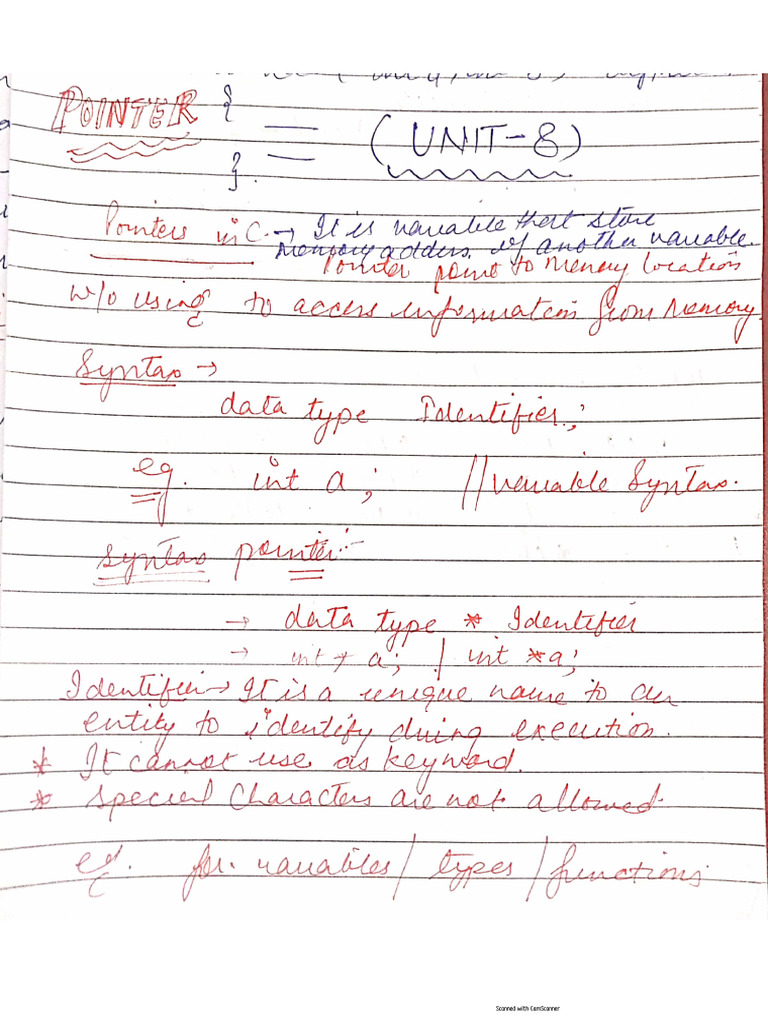 POINTER {
= (UNIT-8)
}.
Pointers in C. → It is variable that store
memory adders. of another variable.
Pointer point to Memory location
w/o using to access information from Memory.
Syntax →
data type Identifier;
eg. int a; //variable Syntax.
Syntax pointer:-
→ data type * Identifier
→ int * a; / int *a;
Identifier → It is a unique name to an
entity to identify duing execution.
* It cannot use as keyword.
* Special Characters are not allowed.
eg. for. variables / types / functions
Scanned with CamScanner